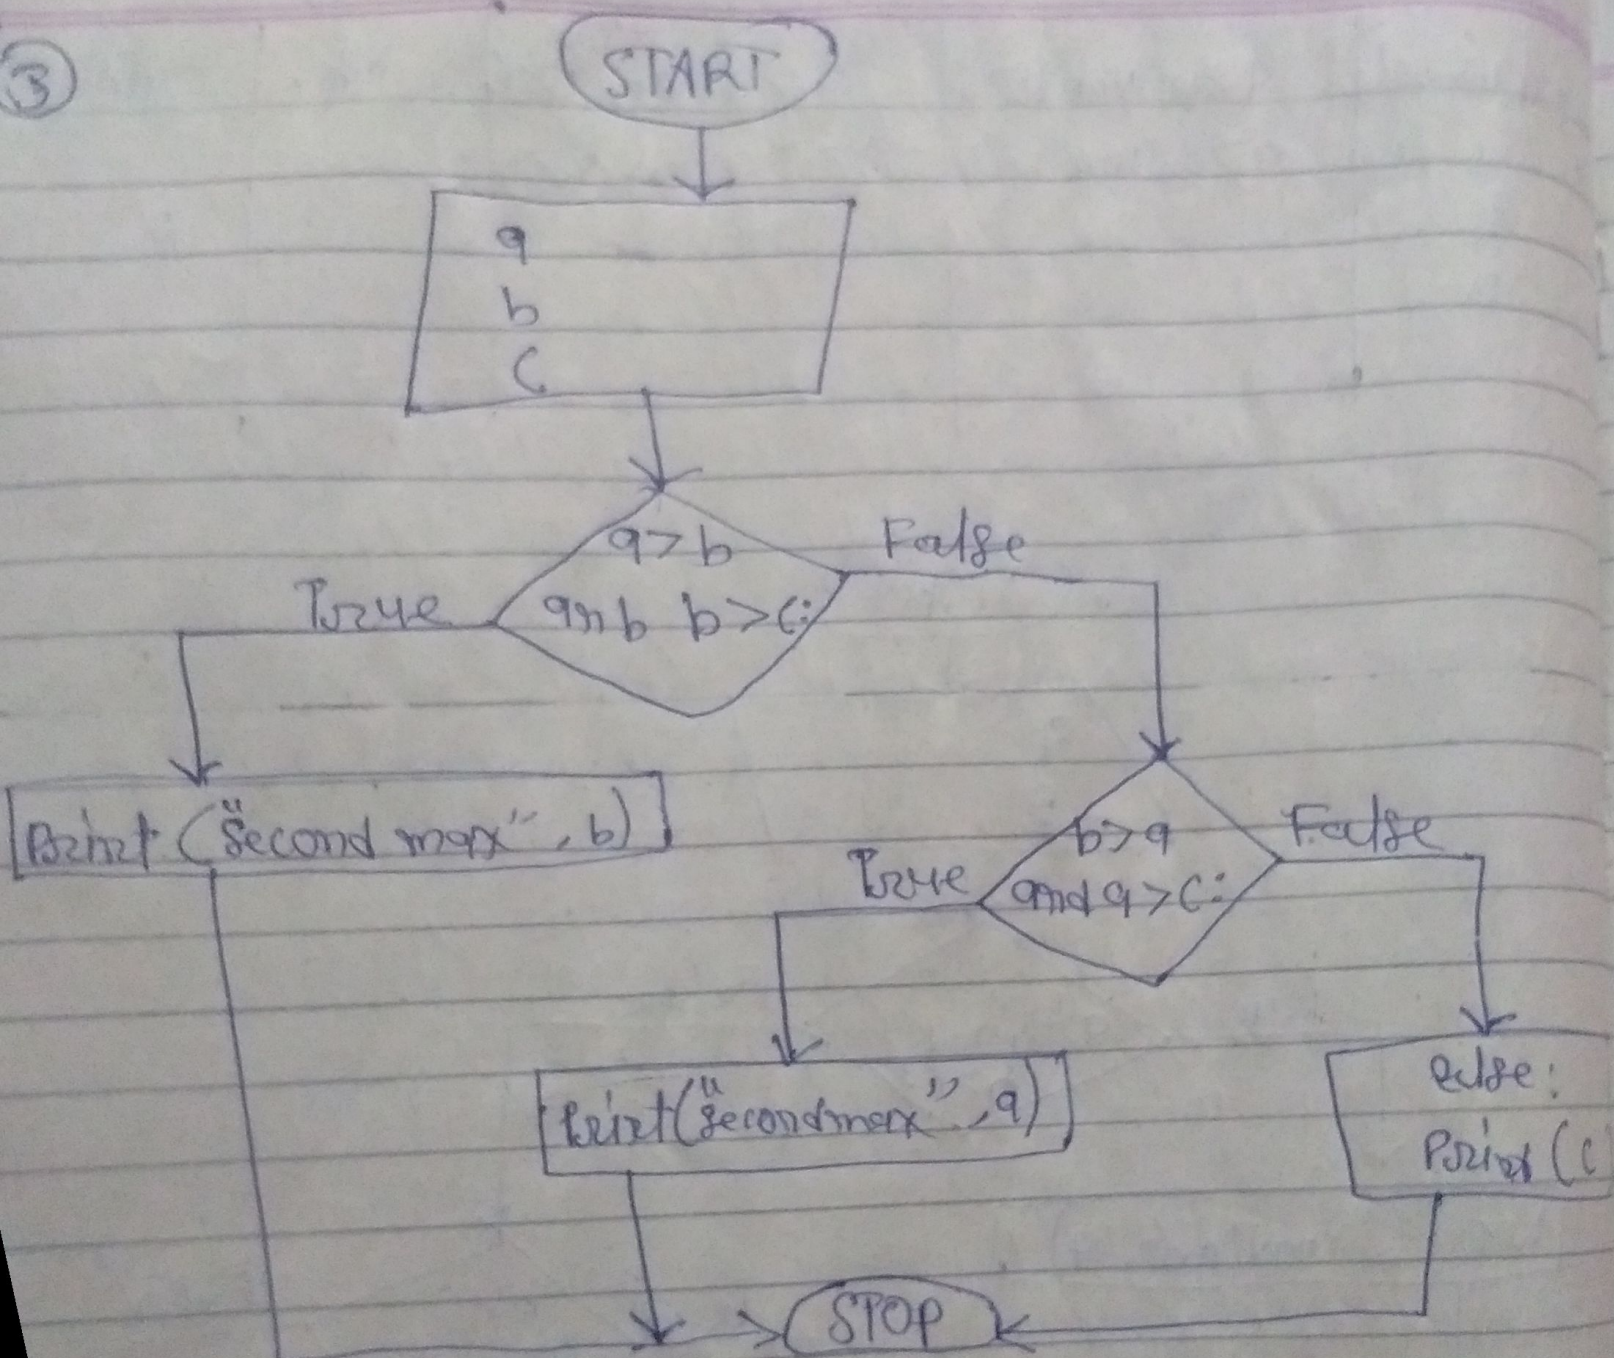 3
START
a
b
C
a>b
anb b>C:
False
True
Print ("second max", b)
b>a
and a>C:
False
True
Print("second max", a)
else:
Print (C
STOP